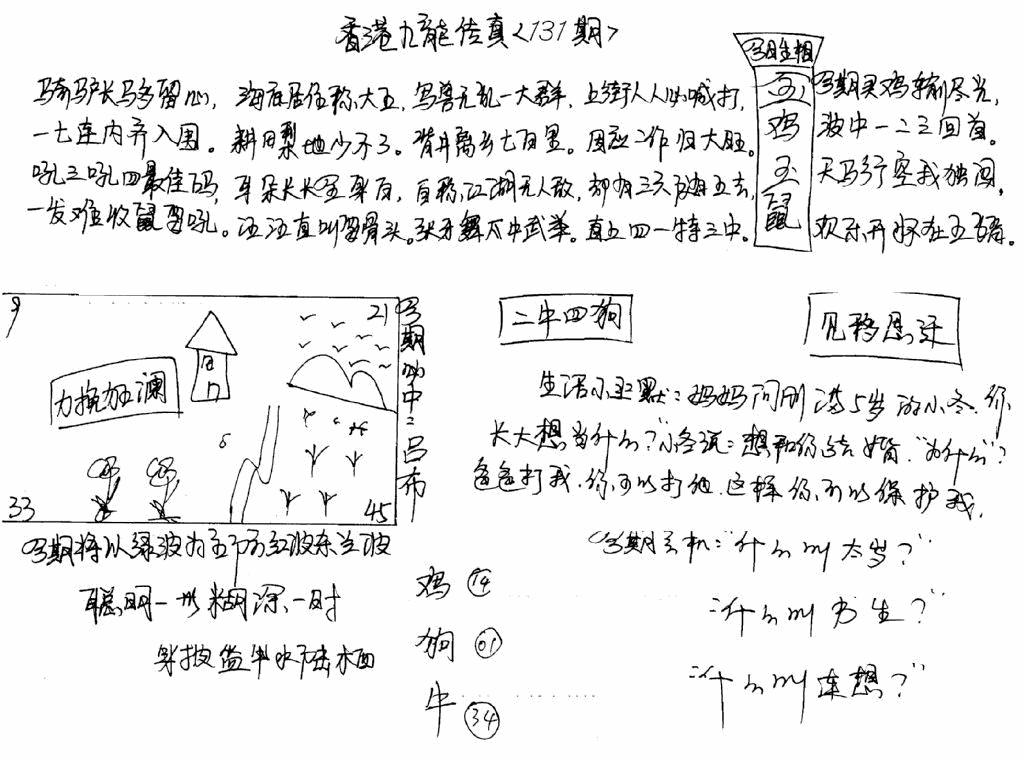 香港九龙传真<131期>
骑驴长马多留心，海底居住称大王，鸟兽无乱一大群，上街人人必喊打，
一七连内齐入围。耕田犁地少不了。背井离乡七百里。因应二作归大旺。
吼三吼四最佳码，耳朵长长军来白，自称江湖无人敌，却有三六及五去，
一发难收鼠留吼。汪汪直叫留骨头。张牙舞不中武举。直五四一特三中。
今日生相
玄
鸡
玄
鼠
今期灵鸡转尽光，
波中一二三回首。
天马行空我独闯，
欢乐开怀在五
9
21
力挽加澜
33
45
今期必中：吕布
二牛四狗
见移思
生活小幽默：妈妈问刚满5岁的小冬，你
长大想当什么？"小冬说：想和你结婚．"为什么"？
爸爸打我，你可以打他，这样你可以保护我．
今期玄机："什么叫太岁？"
"什么叫书生？"
"什么叫连想？"
今期将以绿波为主防红波东兰波
聪明一世糊涂一时
鸡 14
狗 01
牛 34